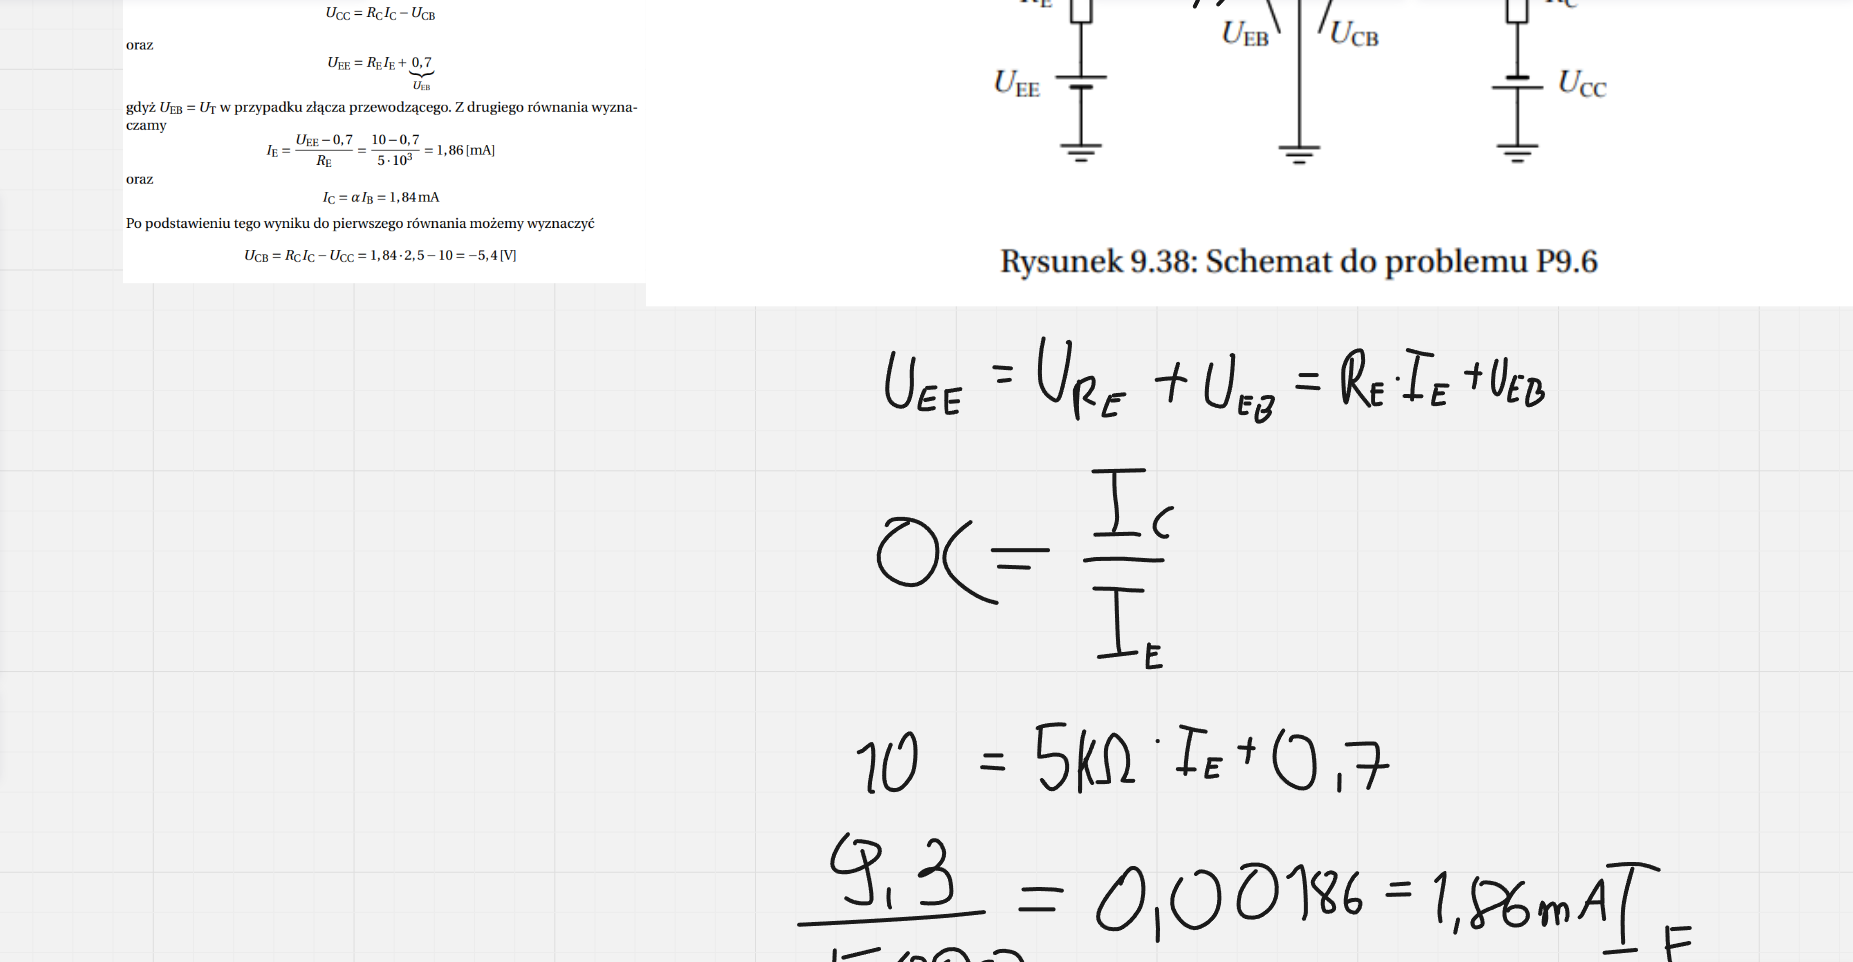 U_CC = R_C I_C − U_CB
oraz
U_EE = R_E I_E + 0,7
U_EB
gdyż U_EB = U_T w przypadku złącza przewodzącego. Z drugiego równania wyzna-
czamy
I_E = (U_EE − 0,7)/R_E = (10 − 0,7)/(5·10³) = 1,86 [mA]
oraz
I_C = α I_B = 1,84 mA
Po podstawieniu tego wyniku do pierwszego równania możemy wyznaczyć
U_CB = R_C I_C − U_CC = 1,84·2,5 − 10 = −5,4 [V]
U_EB U_CB
U_EE U_CC
Rysunek 9.38: Schemat do problemu P9.6
U_EE = U_R_E + U_EB = R_E · I_E + U_EB
α = I_C / I_E
10 = 5kΩ · I_E + 0,7
9,3 = 0,00186 = 1,86mA I_E